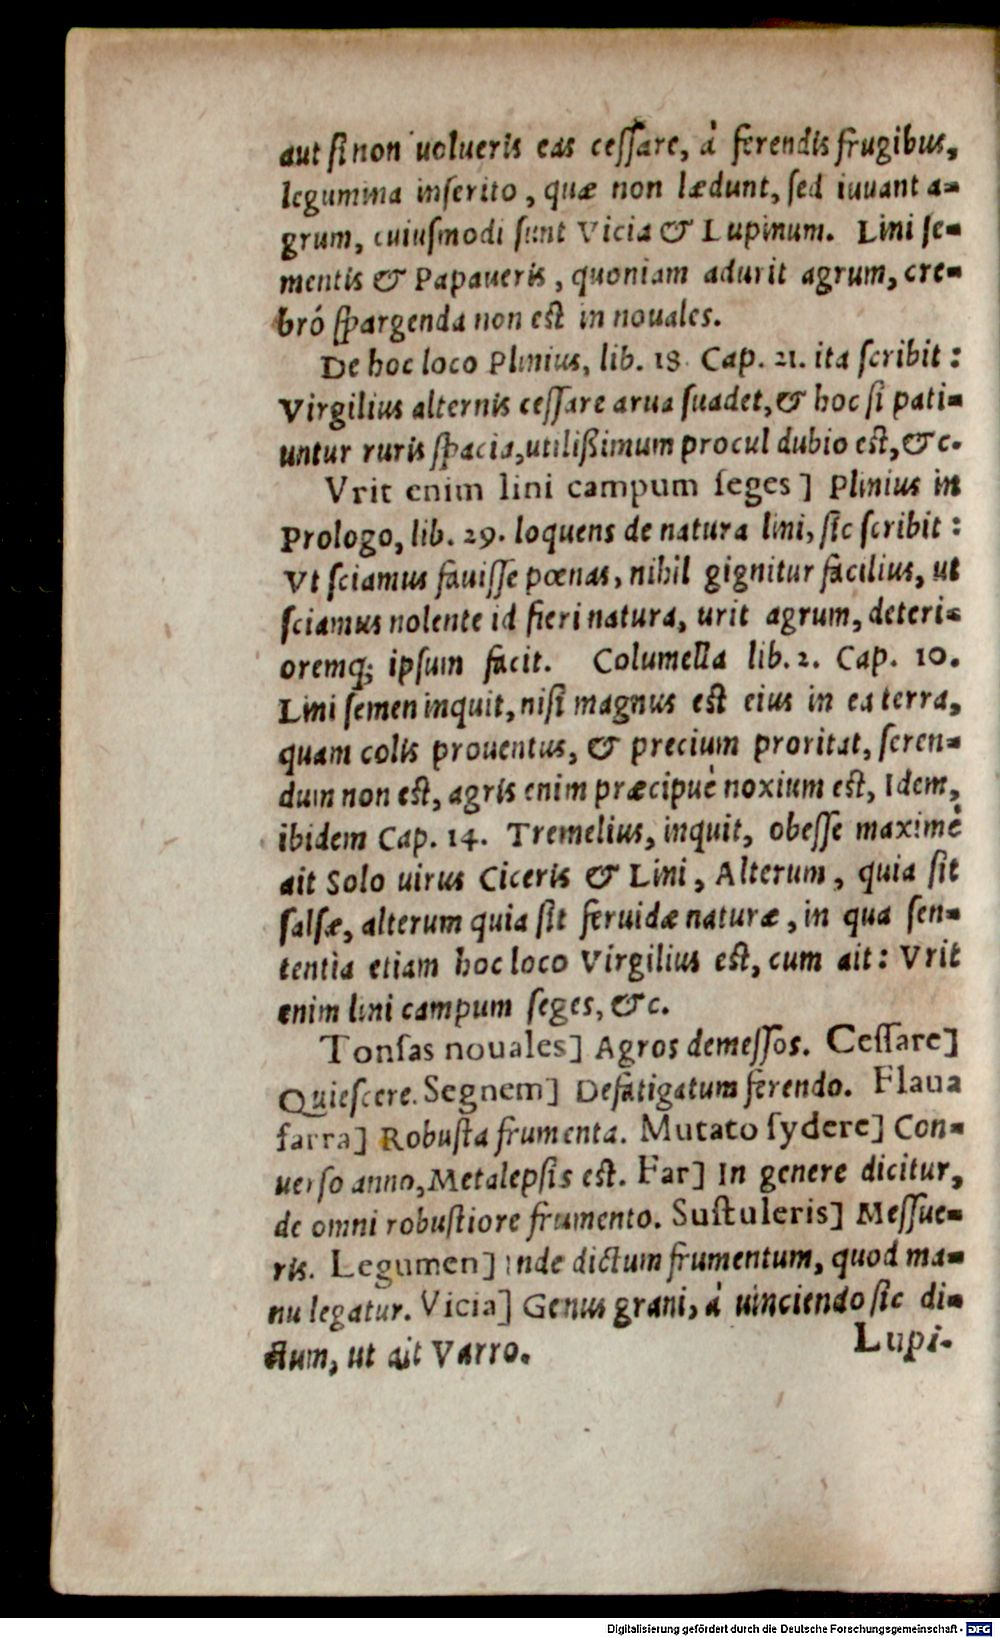 aut ſi non uolueris eas ceſſare, à ferendis frugibus,
legumina inſerito, quæ non lædunt, ſed iuuant a-
grum, cuiuſmodi ſunt Vicia & Lupinum. Lini ſe-
mentis & Papaueris, quoniam adurit agrum, cre-
bró ſpargenda non eſt in nouales.
De hoc loco Plinius, lib. 18. Cap. 21. ita ſcribit:
Virgilius alternis ceſſare arua ſuadet, & hoc ſi pati-
untur ruris ſpacia, utilißimum procul dubio eſt, &c.
Vrit enim lini campum ſeges] Plinius in
Prologo, lib. 29. loquens de natura lini, ſic ſcribit:
Vt ſciamus fauiſſe pœnas, nihil gignitur facilius, ut
ſciamus nolente id fieri natura, urit agrum, deteri-
oremq; ipſum facit. Columella lib. 2. Cap. 10.
Lini ſemen inquit, niſi magnus eſt eius in ea terra,
quam colis prouentus, & precium proritat, ſeren-
dum non eſt, agris enim præcipuè noxium eſt, Idem,
ibidem Cap. 14. Tremelius, inquit, obeſſe maximè
ait Solo uirus Ciceris & Lini, Alterum, quia ſit
ſalſæ, alterum quia ſit feruidæ naturæ, in qua ſen-
tentia etiam hoc loco Virgilius eſt, cum ait: Vrit
enim lini campum ſeges, &c.
Tonſas nouales] Agros demeſſos. Ceſſare]
Quieſcere. Segnem] Defatigatum ferendo. Flaua
farra] Robuſta frumenta. Mutato ſydere] Con-
uerſo anno, Metalepſis eſt. Far] In genere dicitur,
de omni robuſtiore frumento. Suſtuleris] Meſſue-
ris. Legumen] Inde dictum frumentum, quod ma-
nu legatur. Vicia] Genus grani, à uinciendo ſic di-
ctum, ut ait Varro.
Lupi-
Digitalisierung gefördert durch die Deutsche Forschungsgemeinschaft - DFG